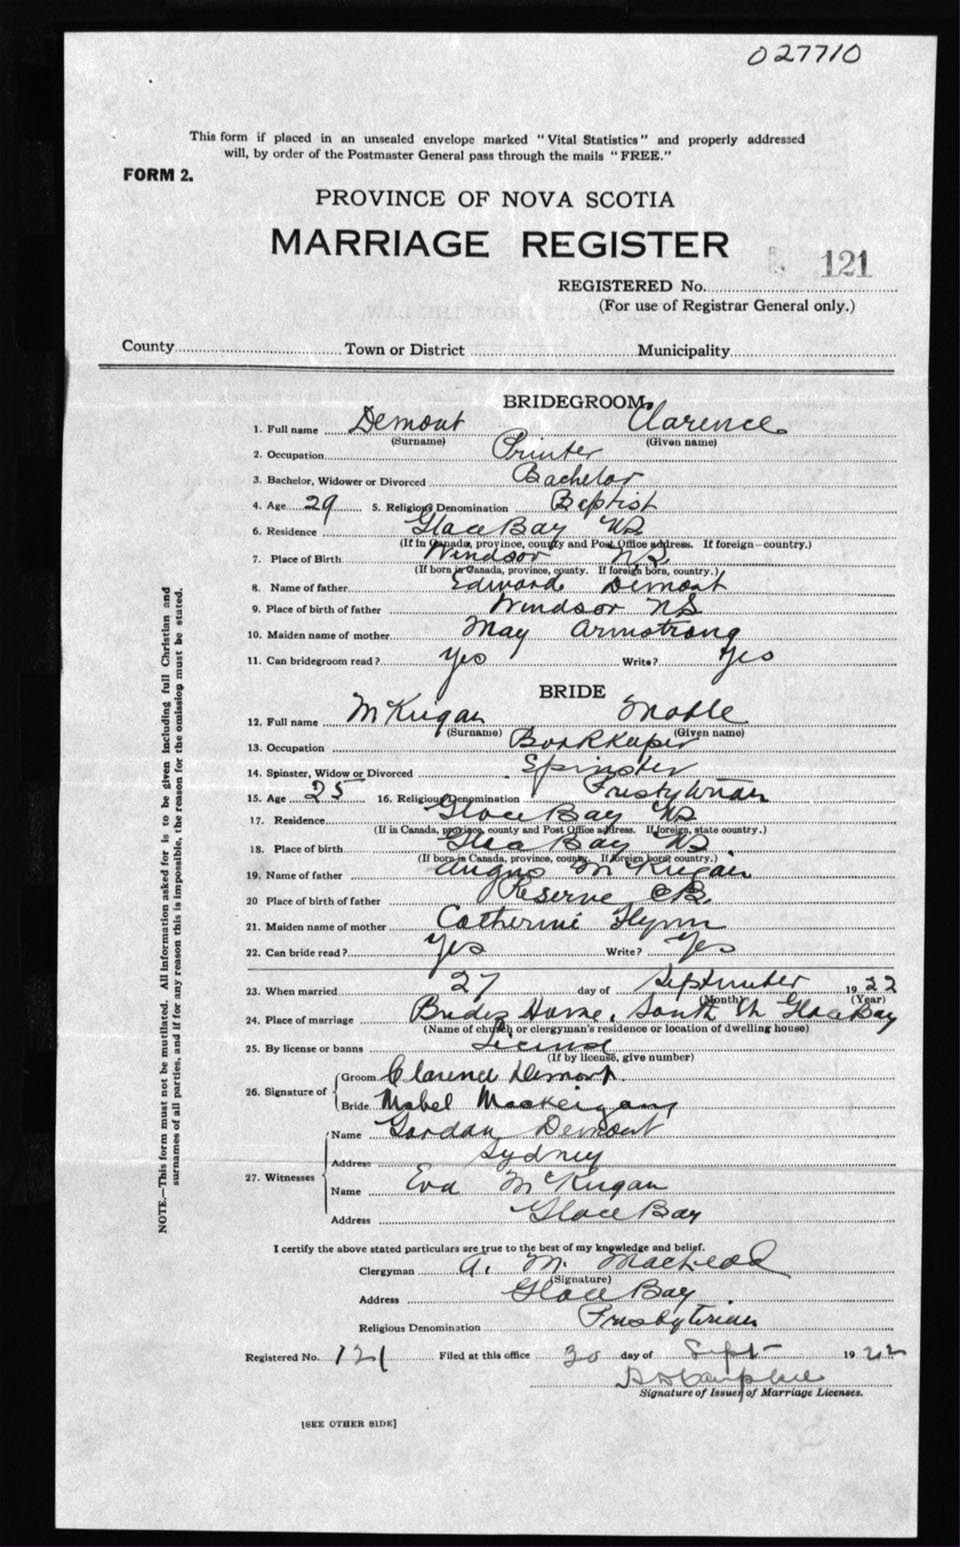 027710
This form if placed in an unsealed envelope marked "Vital Statistics" and properly addressed
will, by order of the Postmaster General pass through the mails "FREE."
FORM 2.
PROVINCE OF NOVA SCOTIA
MARRIAGE REGISTER
121
REGISTERED No.
(For use of Registrar General only.)
County Town or District Municipality
BRIDEGROOM
1. Full name Demont Clarence
(Surname) (Given name)
2. Occupation Printer
3. Bachelor, Widower or Divorced Bachelor
4. Age 29 5. Religious Denomination Baptist
6. Residence Glace Bay NS
(If in Canada, province, county and Post Office address. If foreign—country.)
7. Place of Birth Windsor N.S.
(If born in Canada, province, county. If foreign born, country.)
8. Name of father Edward Demont
9. Place of birth of father Windsor NS
10. Maiden name of mother May Armstrong
11. Can bridegroom read? Yes Write? Yes
BRIDE
12. Full name McKigan Mable
(Surname) (Given name)
13. Occupation Bookkeeper
14. Spinster, Widow or Divorced Spinster
15. Age 25 16. Religious Denomination Presbyterian
17. Residence Glace Bay NS
(If in Canada, province, county and Post Office address. If foreign, state country.)
18. Place of birth Glace Bay NS.
(If born in Canada, province, county. If foreign born country.)
19. Name of father Angus McKigan
20 Place of birth of father Reserve CB.
21. Maiden name of mother Catherine Flynn
22. Can bride read? Yes Write? Yes
23. When married 27 day of September 1922
(Month) (Year)
24. Place of marriage Brides Home, South St Glace Bay
(Name of church or clergyman's residence or location of dwelling house)
25. By license or banns License
(If by license, give number)
26. Signature of
Groom Clarence Demont.
Bride Mabel MacKeigan
27. Witnesses
Name Gordon Demont
Address Sydney
Name Eva McKigan
Address Glace Bay
I certify the above stated particulars are true to the best of my knowledge and belief.
Clergyman A. M. MacLeod
(Signature)
Address Glace Bay.
Religious Denomination Presbyterian
Registered No. 121 Filed at this office 30 day of Sept 1922
Signature of Issuer of Marriage Licenses.
[SEE OTHER SIDE]
NOTE.—This form must not be mutilated. All information asked for is to be given including full Christian and
surnames of all parties, and if for any reason this is impossible, the reason for the omission must be stated.